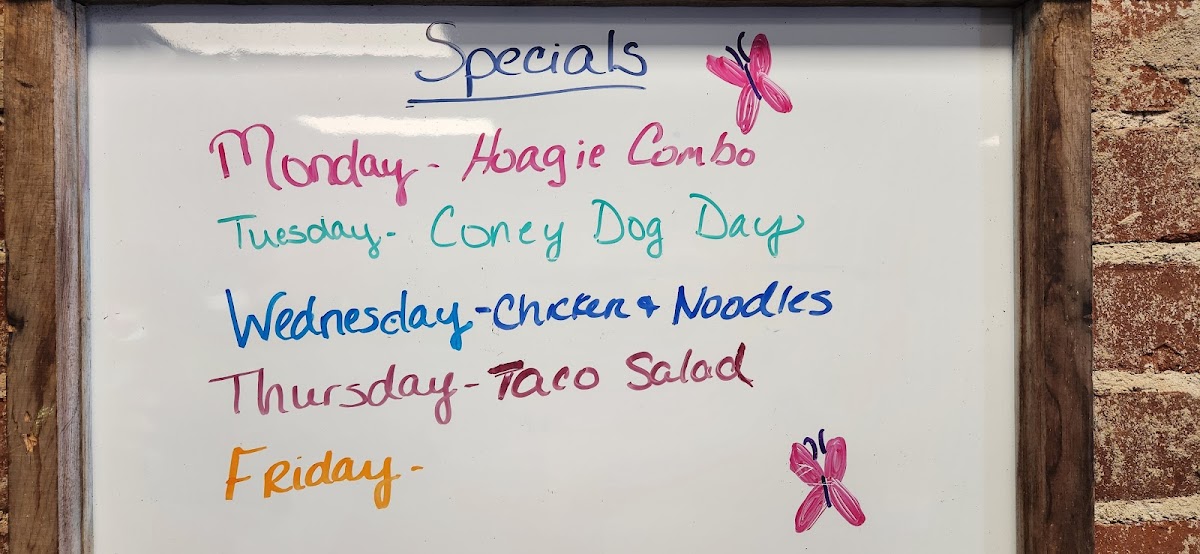 Specials
Monday - Hoagie Combo
Tuesday - Coney Dog Day
Wednesday - Chicken & Noodles
Thursday - Taco Salad
Friday -